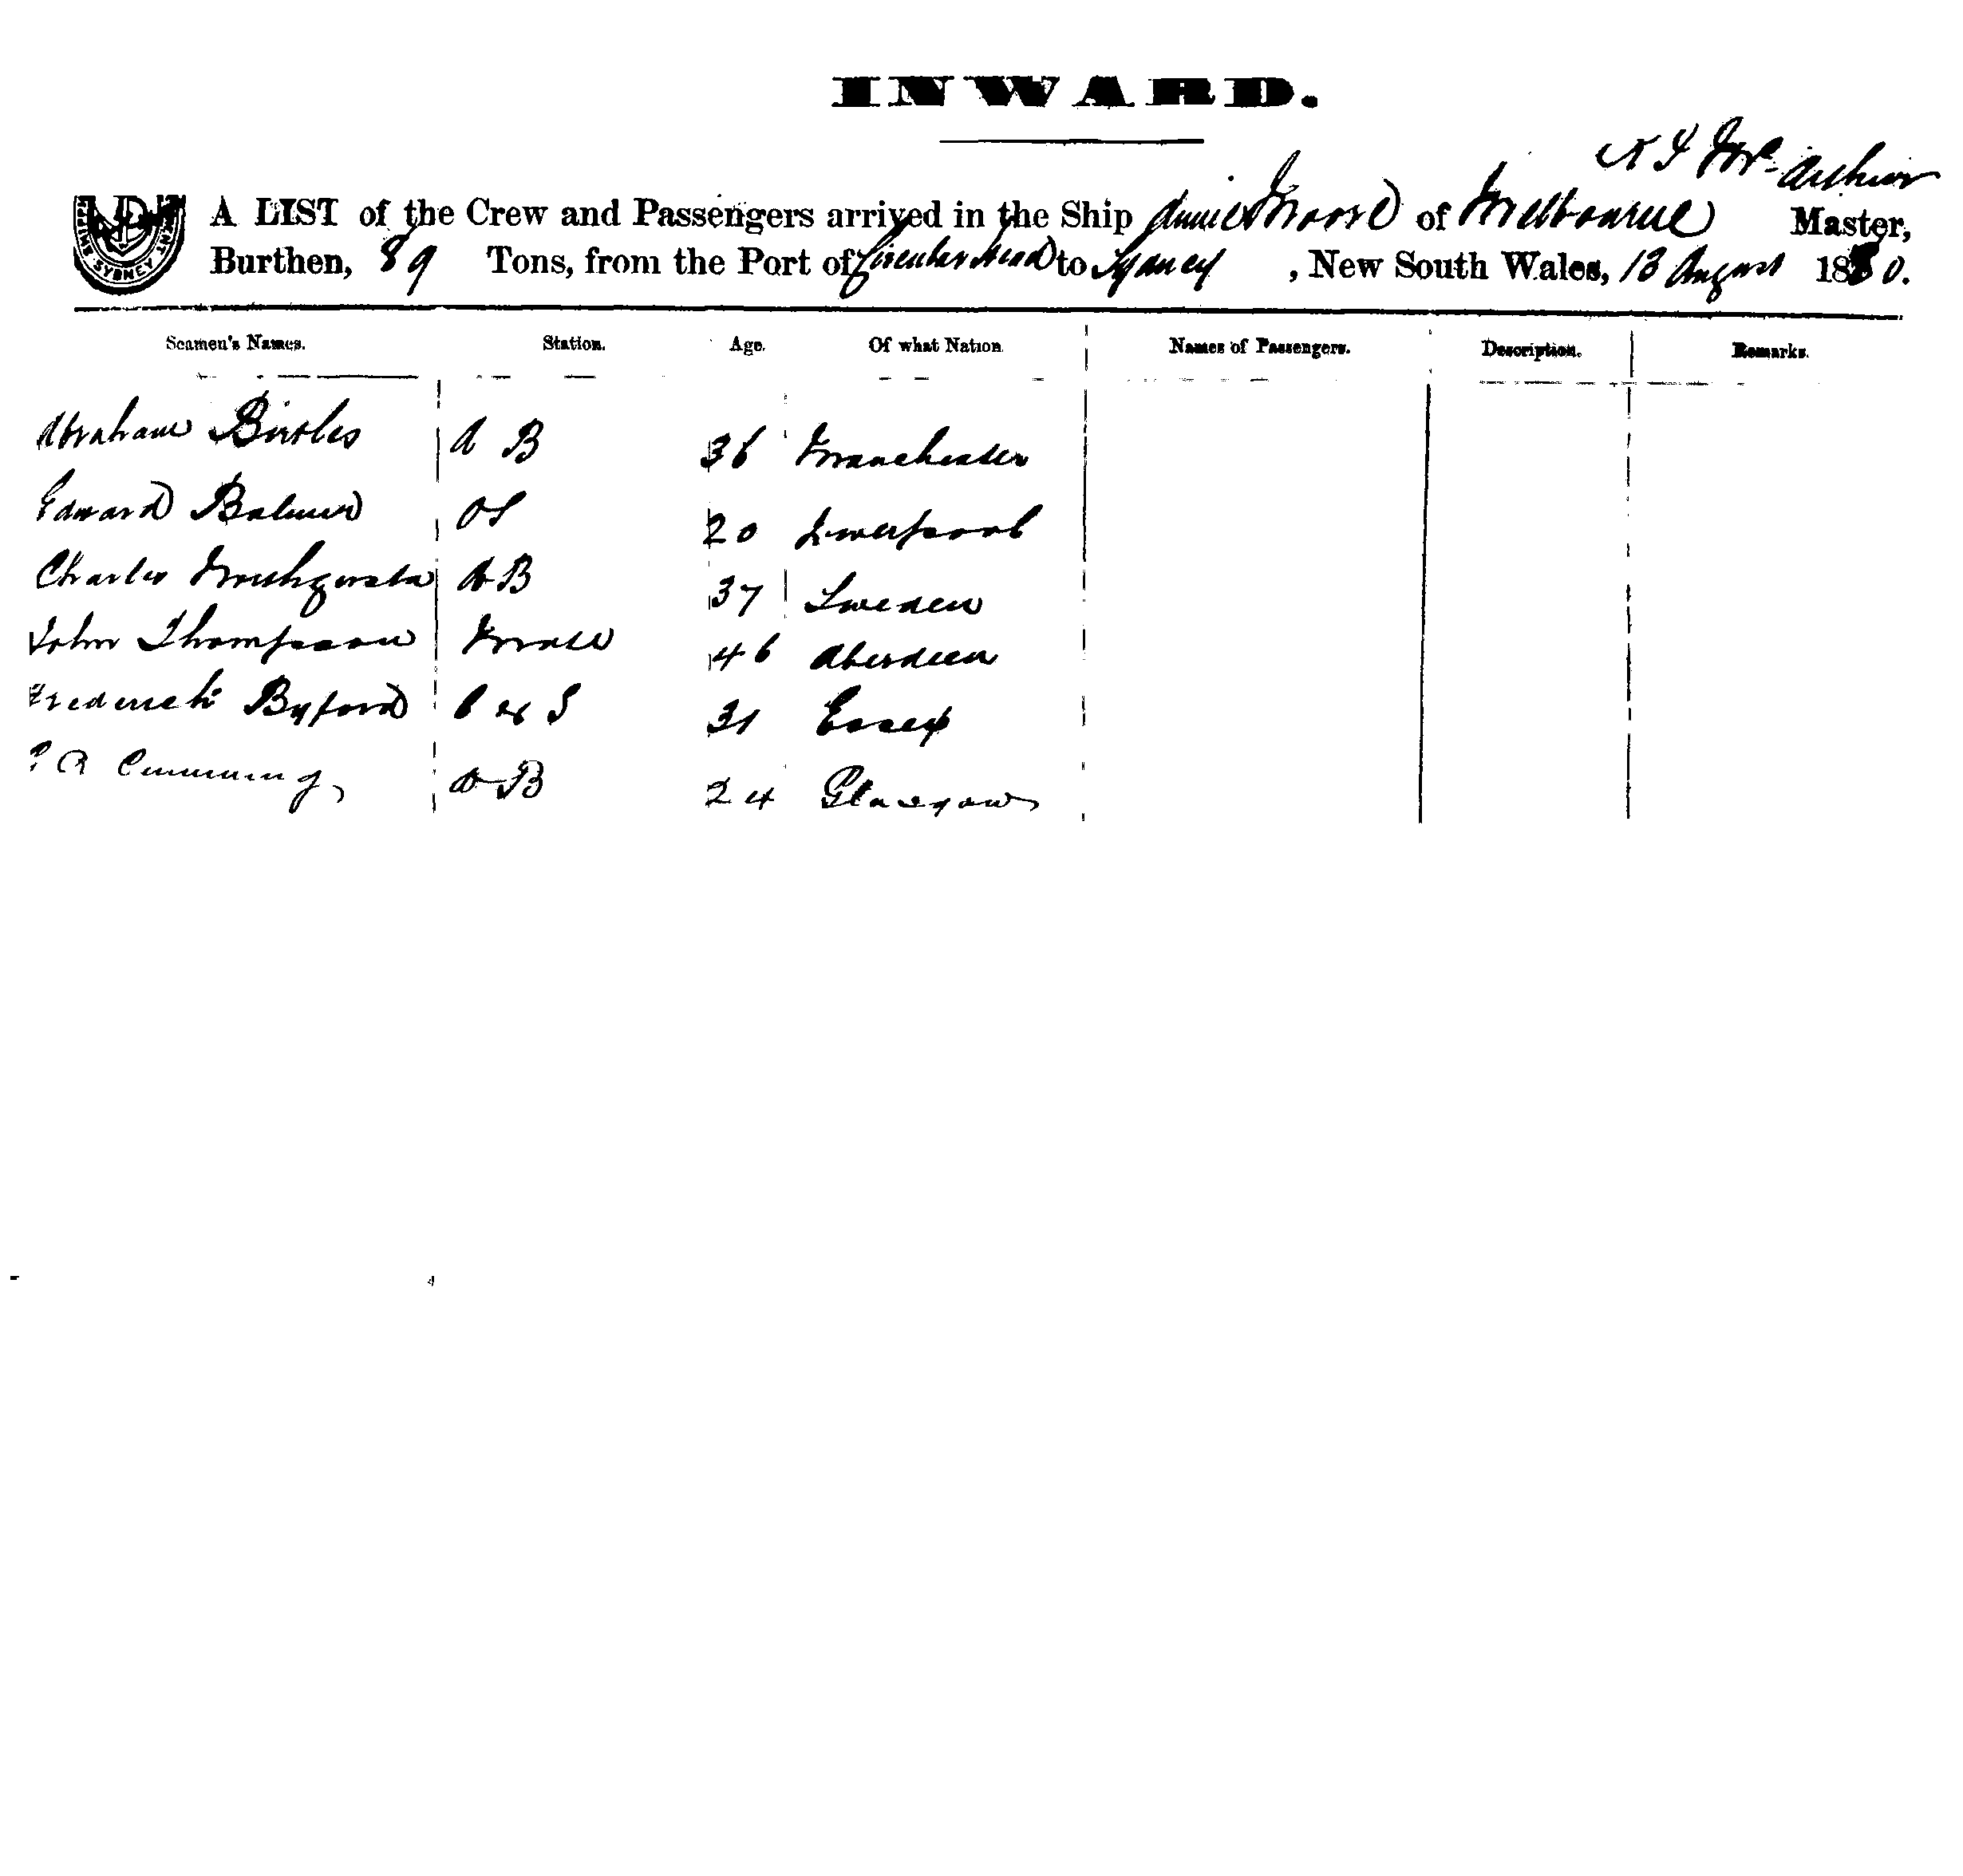 INWARD.
K I Mc Arthur
A LIST of the Crew and Passengers arrived in the Ship Annie Moore of Melbourne Master,
SHIPPING SYDNEY
Burthen, 89 Tons, from the Port of Circular Head to Sydney, New South Wales, 13 August 1880.
Seamen's Names. Station. Age. Of what Nation. Names of Passengers. Description. Remarks.
Abraham Birtles A B 36 Manchester
Edward Balmer OS 20 Liverpool
Charles AB 37 Sweden
John Thompson Mate 46 Aberdeen
Frederick Byford C & S 31 Essex
R Cumming, AB 24 Glasgow